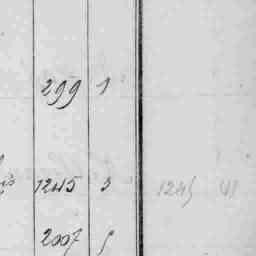 299 1
1245 3 1245
2007 5